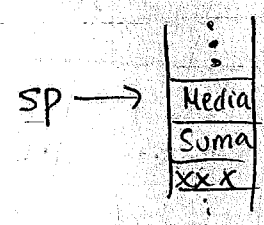 SP → Media
Suma
XXX